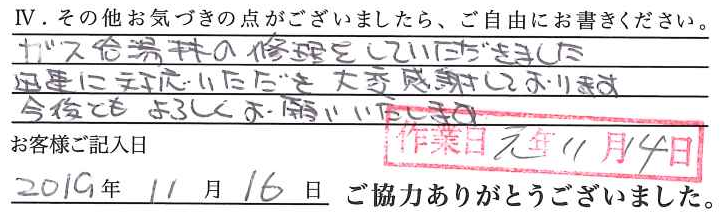 Ⅳ．その他お気づきの点がございましたら、ご自由にお書きください。
ガス給湯器の修理をしていただきました
迅速に対応いただき大変感謝しております
今後ともよろしくお願いいたします
作業日 元年11月14日
お客様ご記入日
2019年 11月 16日 ご協力ありがとうございました。